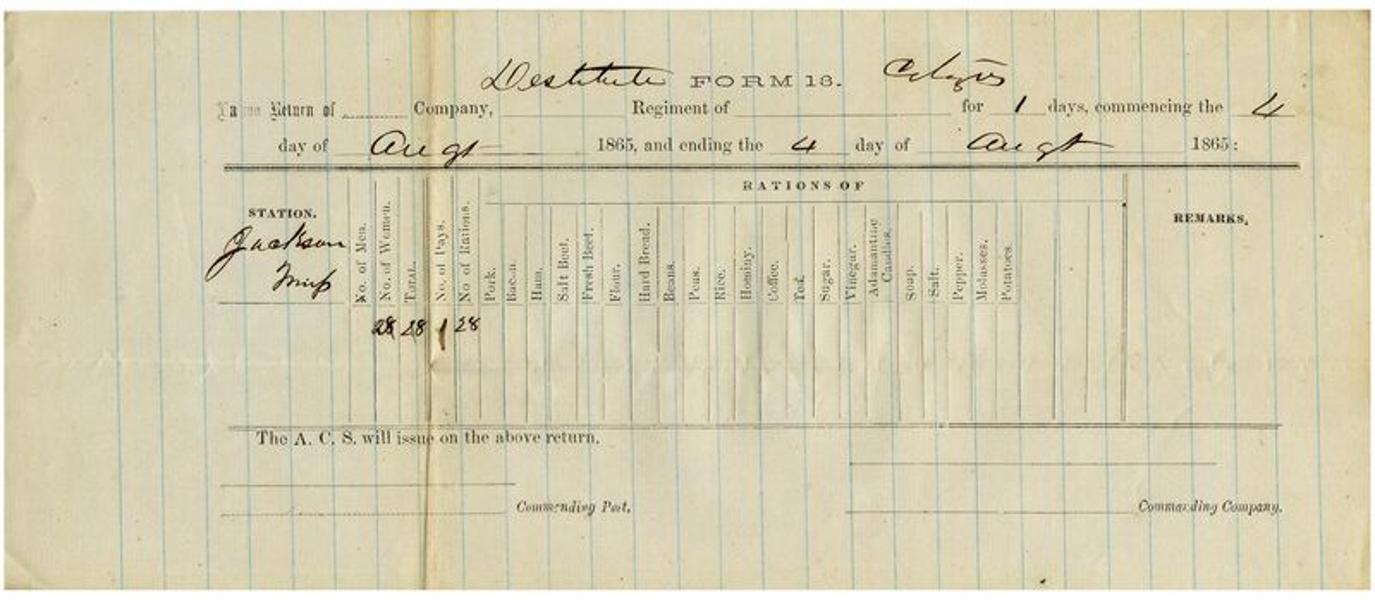 Destitute FORM 13. Citizens
Return of Company, Regiment of for 1 days, commencing the 4
day of Augt 1865, and ending the 4 day of Augt 1865:
RATIONS OF
STATION. No. of Men. No. of Women. TOTAL. No. of Days. No of Rations. Pork. Bacon. Ham. Salt Beef. Fresh Beef. Flour. Hard Bread. Beans. Peas. Rice. Hominy. Coffee. Tea. Sugar. Vinegar. Adamantine Candles. Soap. Salt. Pepper. Molasses. Potatoes. REMARKS.
Jackson
Miss
28 28 1 28
The A. C. S. will issue on the above return.
Commending Post. Commanding Company.